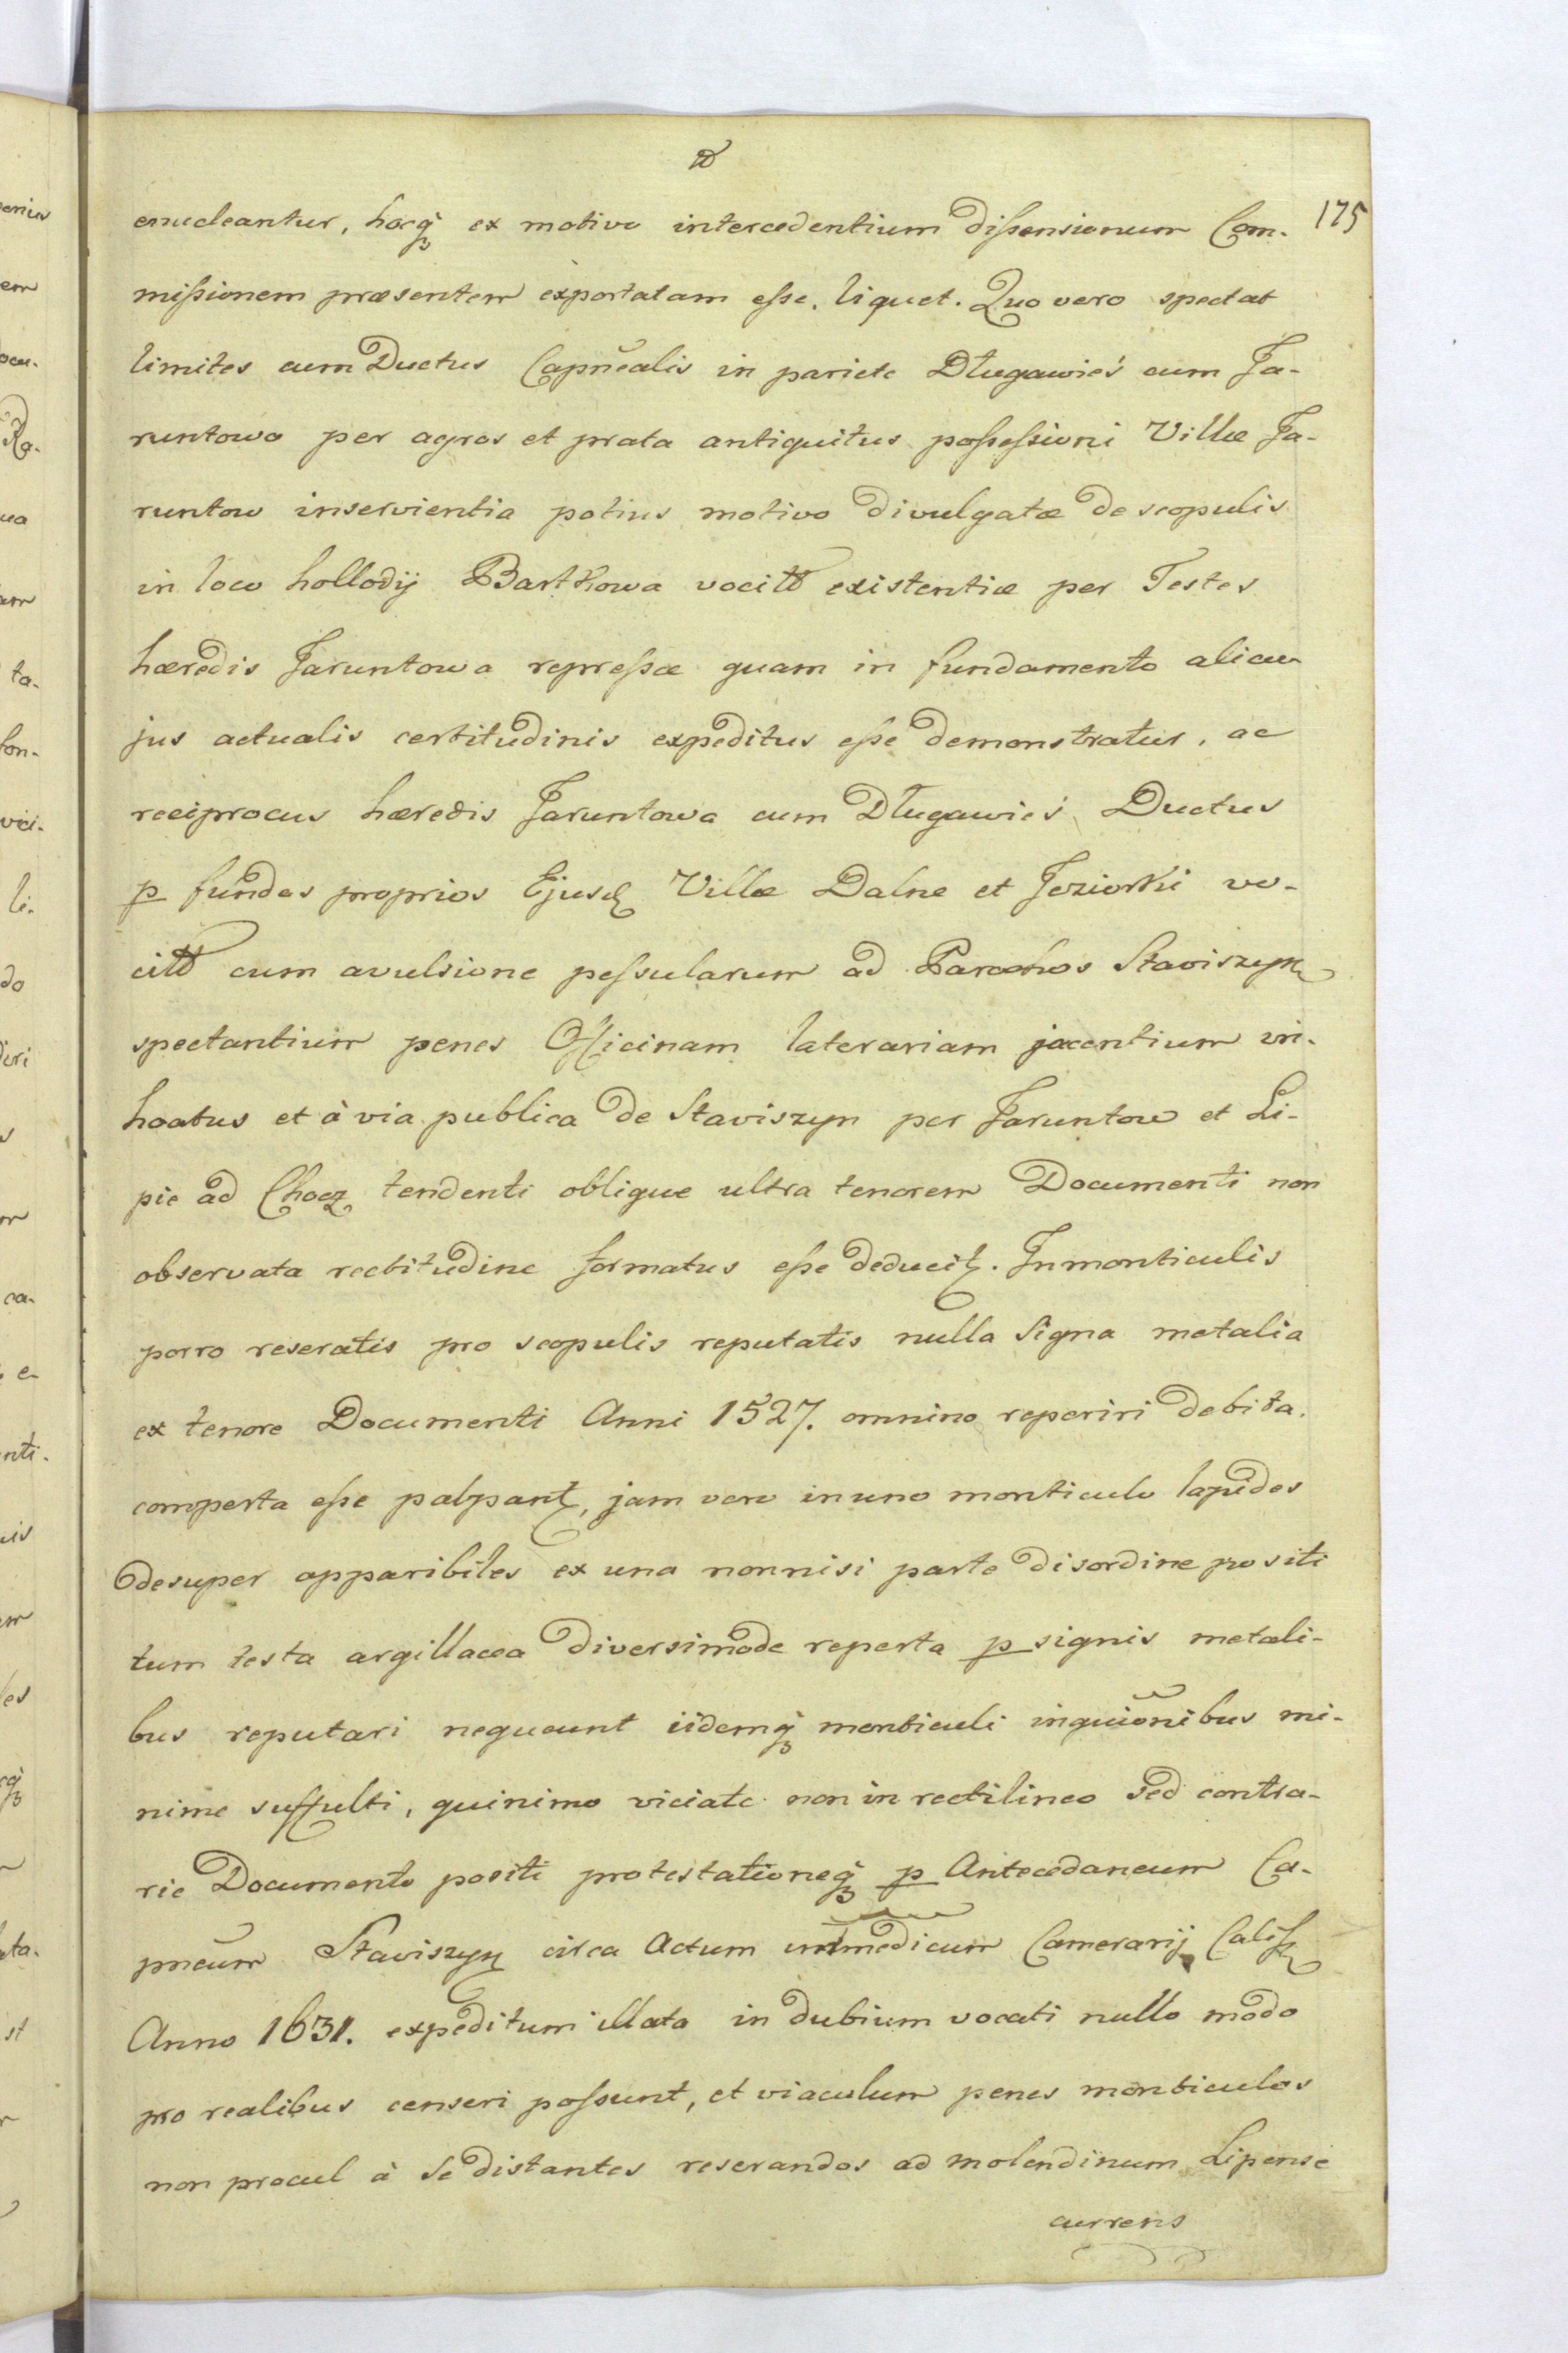 175
enucleantur, hocq́ꝫ ex motivo intercedentium dissensionum Com-
missionem præsentem exportatam esse, liquet. Quo vero spectat
limites cum Ductus Capn̄ealis in pariete Długawieś cum Ja-
runtowo per agros et prata antiquitus possessioni Villæ Ja-
runtow inservientia potius motivo divulgatæ de scopulis
in loco hollodij Bartkowa vocitt existentiæ per Testes
hæredis Jaruntowa repressæ quam in fundamento alicu-
jus actualis certitudinis expeditus esse demonstratur, ac
reciprocus hæredis Jaruntowa cum Długawieś Ductus
p fundos proprios Ejusd Villæ Dalne et Jeziorki vo-
citt cum avulsione pessularum ad Parochos Staviszyn
spectantium penes Officinam laterariam jacentium in-
hoatus et à via publica de Staviszyn per Jaruntow et Li-
pie ad Chocz tendenti oblique ultra tenorem Documenti non
observata rectitudine formatus esse deducit. In monticulis
porro reseratis pro scopulis reputatis nulla Signa metalia
ex tenore Documenti Anni 1527. omnino reperiri debita.
comperta esse palpant, jam vero in uno monticulo lapides
desuper apparibiles ex una nonnisi parte disordine positi
tum testa argillacea diversimode reperta p signis metali-
bus reputari nequeunt iidemq́ꝫ monticuli inquiōnibus mi-
nime suffulti, quinimo viciate non in rectilineo sed contra-
rie Documento positi protestationeq́ꝫ p Antecedaneum Ca-
pneūm Staviszyn circa Actum Camerarij Calisz
Anno 1631. expeditum illata in dubium vocati nullo modo
pro realibus censeri possunt, et viaculum penes monticulos
non procul à se distantes reserandos ad molendinum Lipense
currens